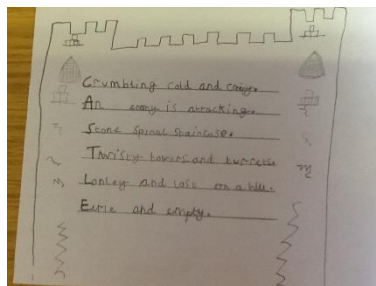 Crumbling cold and creepy.
An enemy is attacking.
Stone spiral staircase.
Twisty towers and turrets
Lonley and lost on a hill.
Eerie and empty.